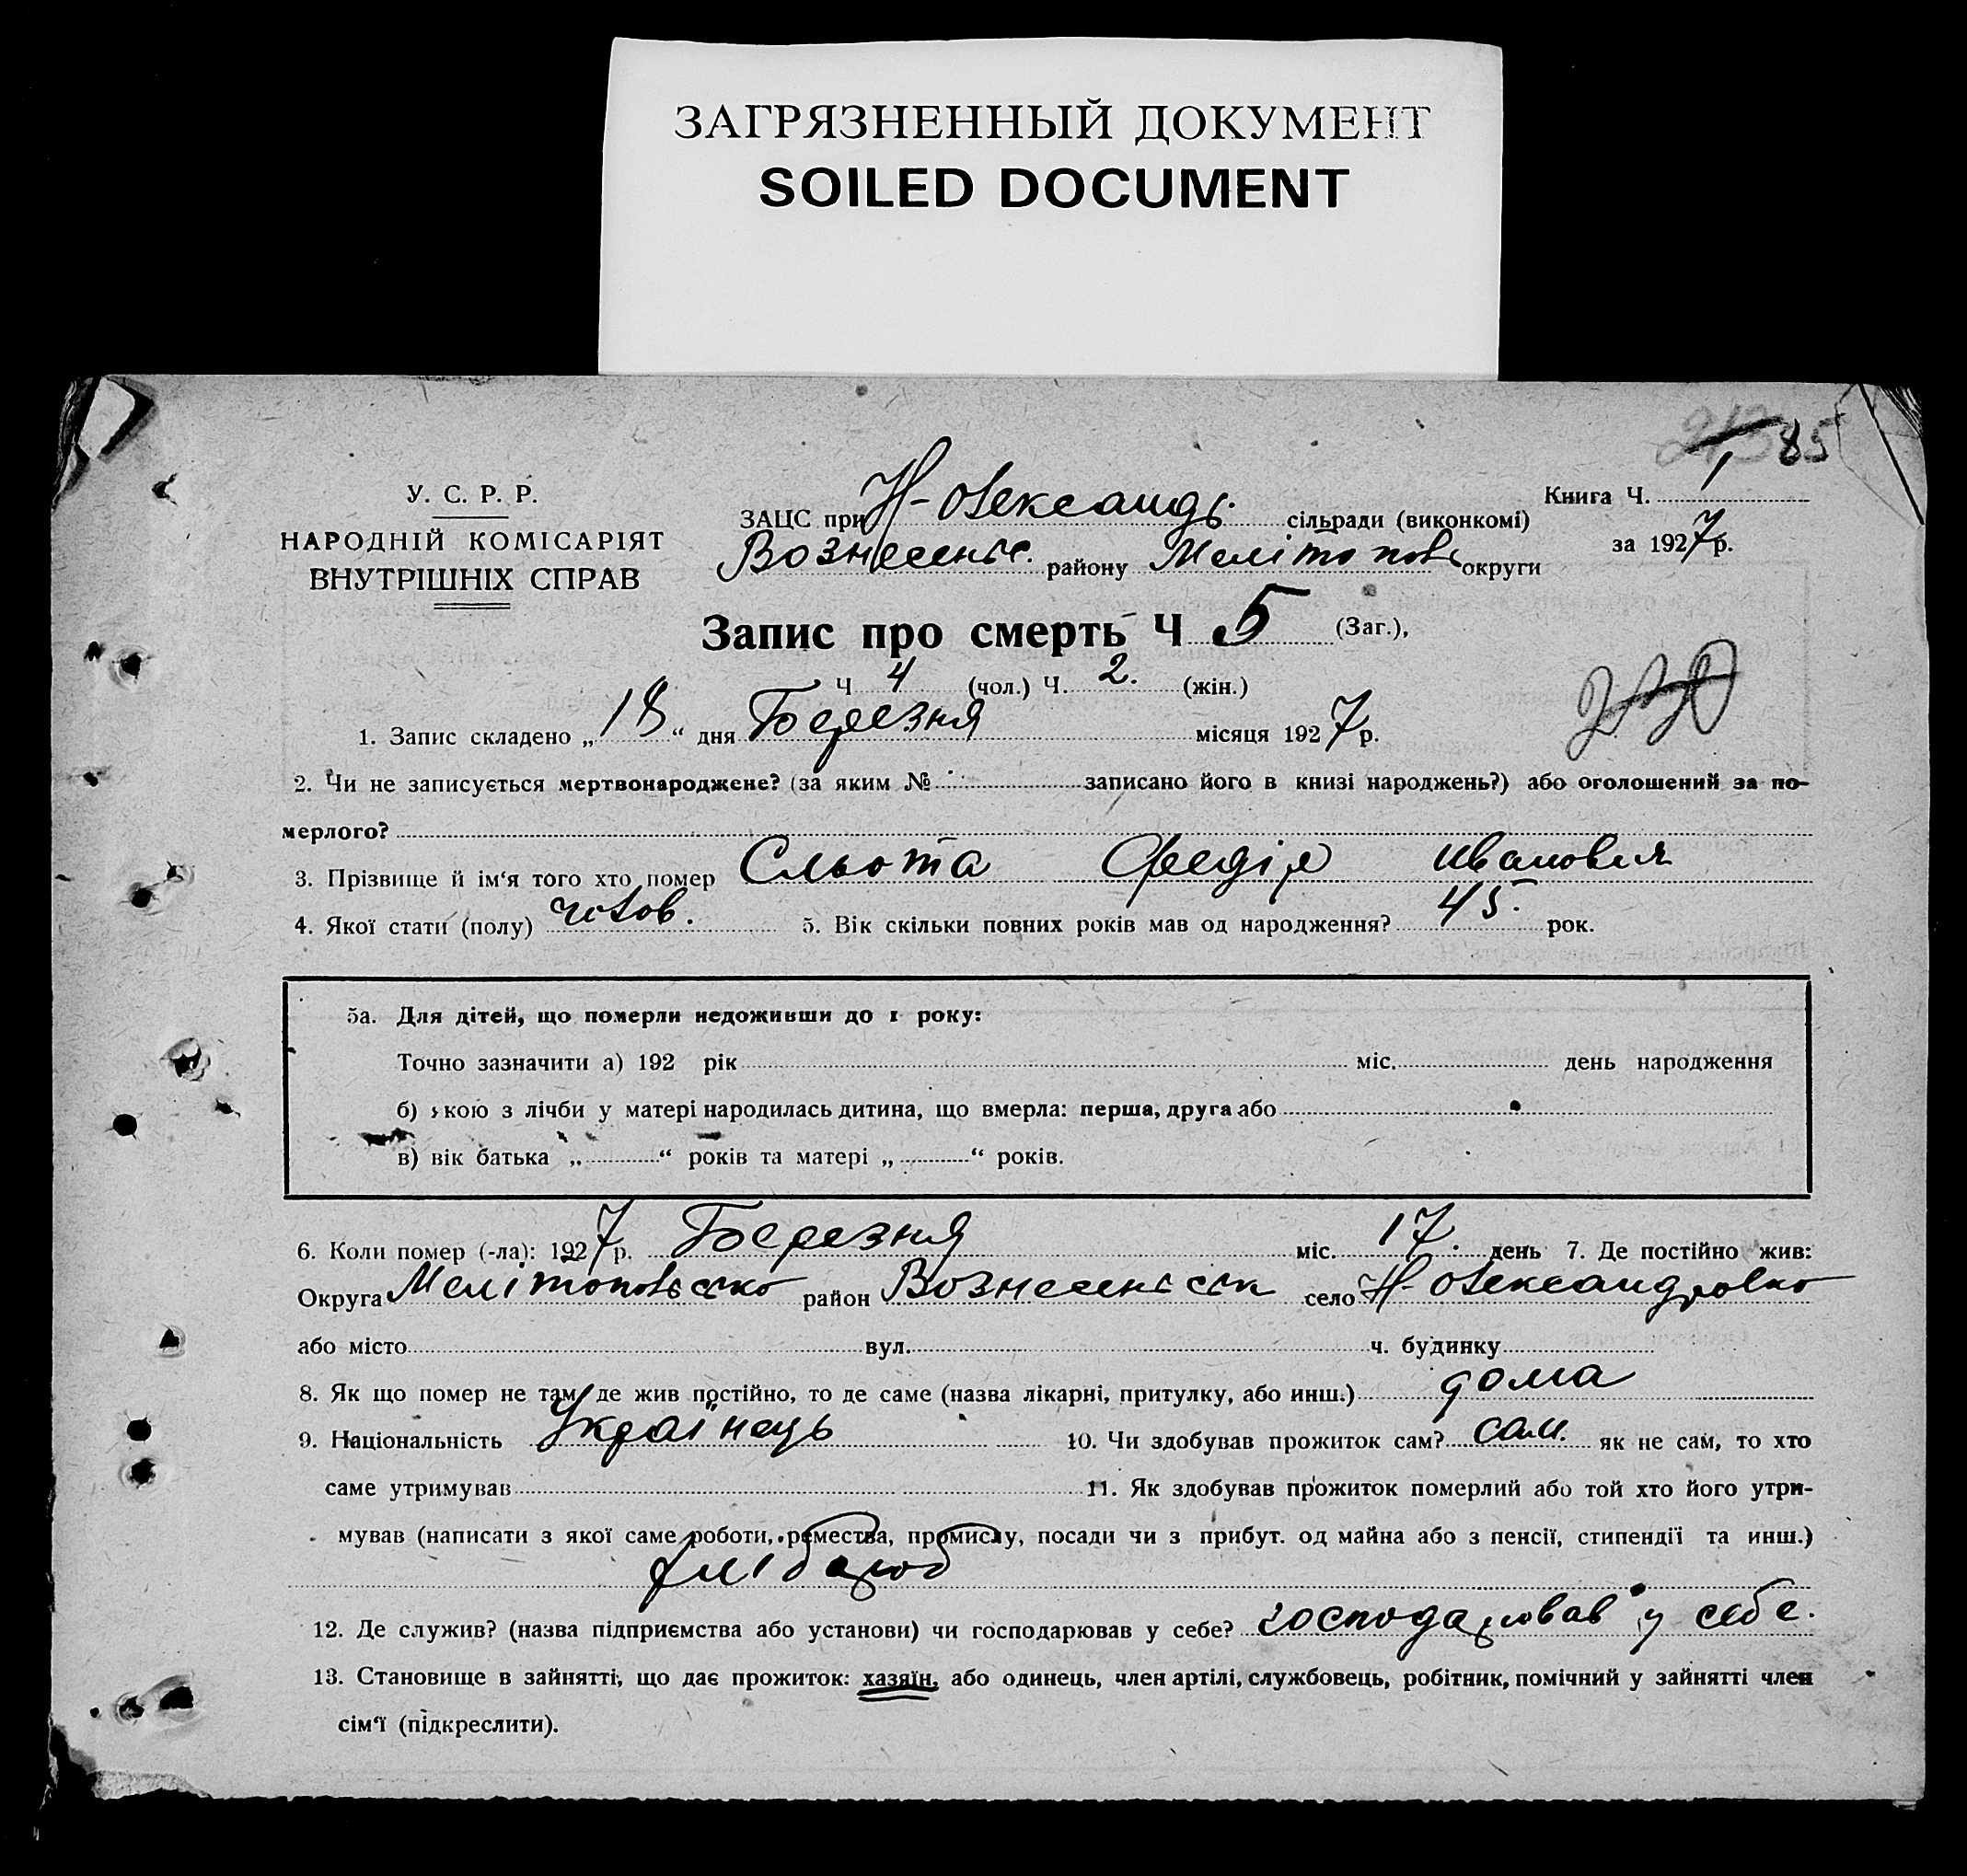 ЗАГРЯЗНЕННЫЙ ДОКУМЕНТ
SOILED DOCUMENT
85
У. С. Р. Р.
НАРОДНІЙ КОМІСАРІЯТ
ВНУТРІШНІХ СПРАВ
ЗАЦС при Н-Олександр. сільради (виконкомі)
Вознесенськ. району Мелітопов. округи
Книга Ч. 1
за 1927 р.
Запис про смерть Ч 5 (Заг.),
Ч 4 (чол.) Ч. 2. (жін.)
1. Запис складено „ 18 “ дня Березня місяця 1927 р.
2. Чи не записується мертвонароджене? (за яким № записано його в книзі народжень?) або оголошений за по-
мерлого?
3. Прізвище й ім‘я того хто помер Сльота Федір Иванович
4. Якої стати (полу) чолов. 5. Вік скільки повних років мав од народження? 45. рок.
5а. Для дітей, що померли недоживши до 1 року:
Точно зазначити а) 192 рік міс. день народження
б) якою з лічби у матері народилась дитина, що вмерла: перша, друга або
в) вік батька „ “ років та матері „ “ років.
6. Коли помер (-ла): 1927 р. Березня міс. 17. день 7. Де постійно жив:
Округа Мелітопольсько район Вознесенськ село Н-Олександровко
або місто вул. ч. будинку
8. Як що помер не там де жив постійно, то де саме (назва лікарні, притулку, або инш.) дома
9. Національність Українець 10. Чи здобував прожиток сам? сам. як не сам, то хто
саме утримував 11. Як здобував прожиток померлий або той хто його утри-
мував (написати з якої саме роботи, ремества, промислу, посади чи з прибут. од майна або з пенсії, стипендії та инш.)
хлібороб
12. Де служив? (назва підприємства або установи) чи господарював у себе? господарював у себе.
13. Становище в зайнятті, що дає прожиток: хазяїн, або одинець, член артілі, службовець, робітник, помічний у зайнятті член
сім‘ї (підкреслити).